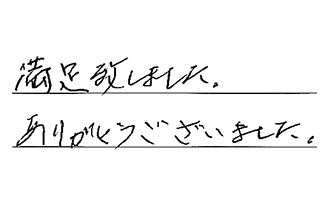 満足致しました。
ありがとうございました。